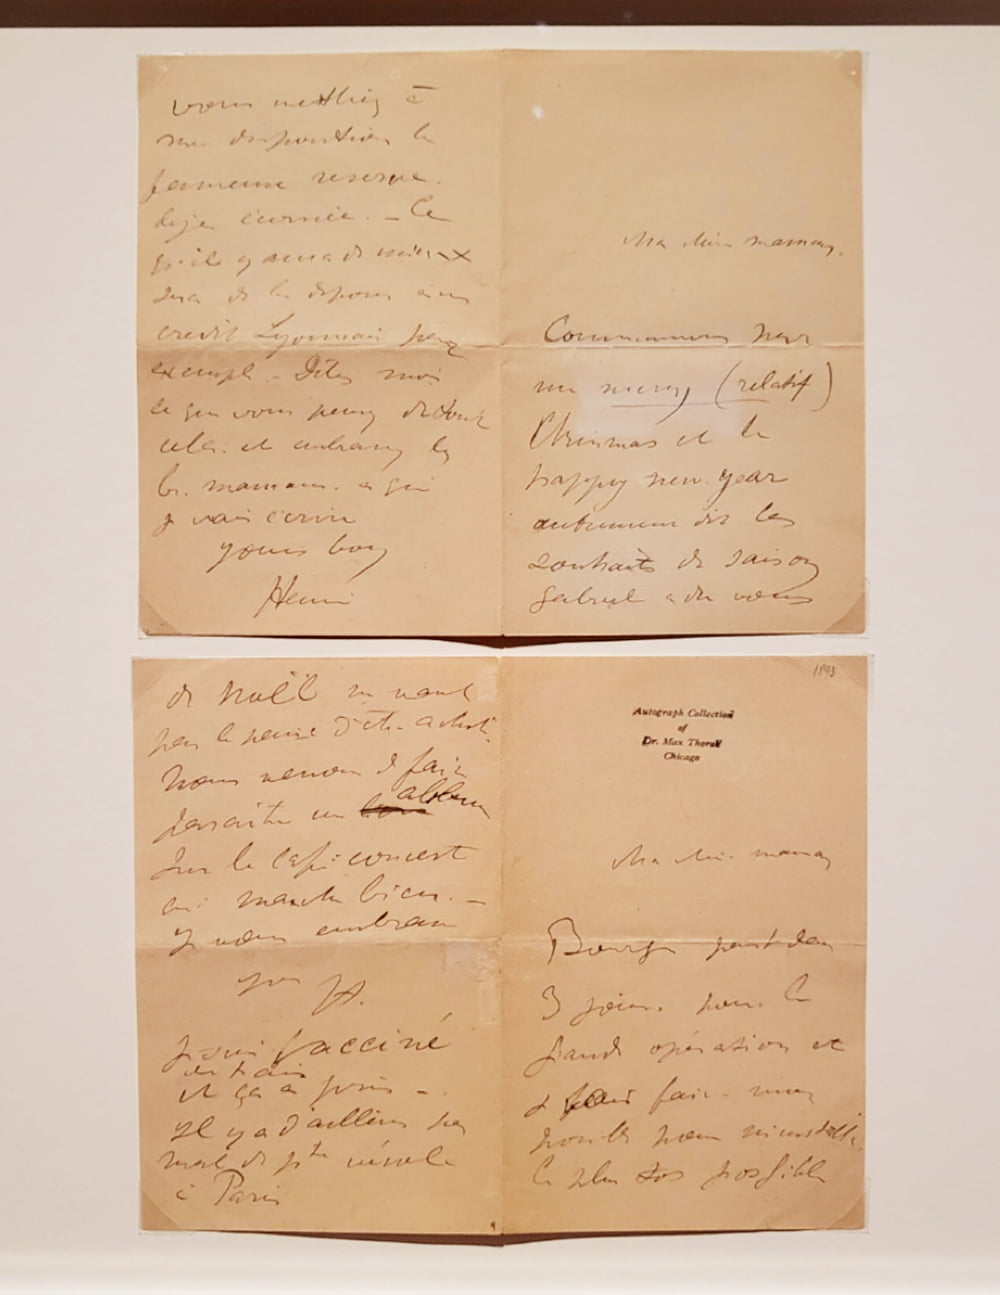 vous mettiez à
ma disposition la
fameuse reserve.
deja écornée. - Ce
qu'il y aura de mieux
sera de la deposer à un
credit Lyonnais par
exemple - Dites moi
ce que vous pensez de tout
cela. et embrassez les
b. mamans. à qui
je vais écrire
yours boy
Henri
Ma chère maman.
Commencons par
un merry (relatif)
Christmas et la
happy new. year
autrement dit les
souhaits de saison
Gabriel a du vous
de Noël ne vaut
pas la peine d'être acheté.
Nous venons de faire
paraitre un album
sur le café-concert
qui marche bien. -
Je vous embrasse
yrs H.
Je suis vacciné
et ça a pris -.
Il y a d'ailleurs pas
mal de pte vérole
à Paris
1893
Autograph Collection
of
Dr. Max Thorek
Chicago
Ma chère maman
Bourges part dans
3 jours. pour la
grande opération et
je faire mon
possible pour
le plus tot possible